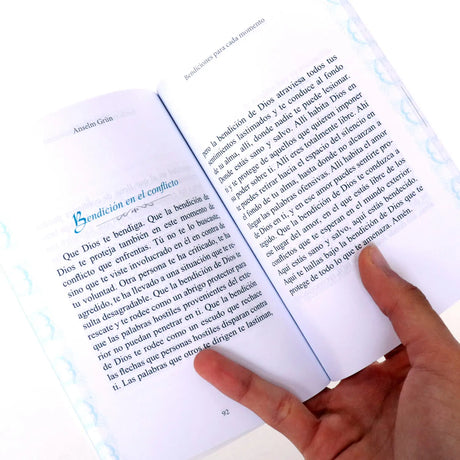 Anselm Grün
Bendición en el conflicto
Que Dios te bendiga. Que la bendición de
Dios te proteja también en este momento de
conflicto que enfrentas. Tú no te lo buscaste,
sino que te viste involucrado en él en contra de
tu voluntad. Otra persona te ha criticado, te ha
agredido, te ha llevado a una situación que te re-
sulta desagradable. Que la bendición de Dios te
rescate y te rodee como un abrigo protector para
que las palabras hostiles provenientes del exte-
rior no puedan penetrar en ti. Que la bendición
de Dios te rodee como un escudo que rechace
las flechas que personas hostiles disparan contra
ti. Las palabras que otros te dirigen te lastiman,
92
Bendiciones para cada momento
pero la bendición de Dios atraviesa todos tus
sentimientos lastimados y te conduce al fondo
de tu alma, allí donde nadie te puede lesionar.
Donde estás sano y salvo. Allí habita Dios en
ti y te protege de aquellos que quieren imponer
su poder sobre ti. Allí eres totalmente libre. Ahí
te puedes retirar hacia el espacio del silencio en
el fondo de tu alma, hasta donde no alcanzan a
llegar las palabras ofensivas. Allí habita el amor
de Dios en ti, y en ese amor puedes sentirte pro-
tegido. Que la bendición de Dios te conduzca a
ese lugar del amor, en el que estás libre de los
conflictos que te esperan en el mundo exterior.
Aquí estás sano y salvo, aquí estás bendecido.
Aquí te hallas bajo la bendición de Dios que te
protege de todo lo que te amenaza. Amén.